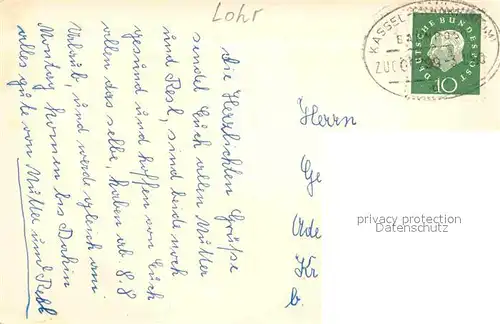 Lohr
die Herzlichten Grüße
sendet Euch allen Mutter
und Resl, sind beide noch
gesund und hoffen von Euch
allen das selbe, haben ab. 8.8
Urlaub, und werde gleich am
Montag komen bis Dahin
alles gute von Mutter und Resl
KASSEL
BAHNPOST
ZUG
DEUTSCHE BUNDESPOST
10
Herrn
Ge
Ade
Kr
b.
privacy protection
Datenschutz